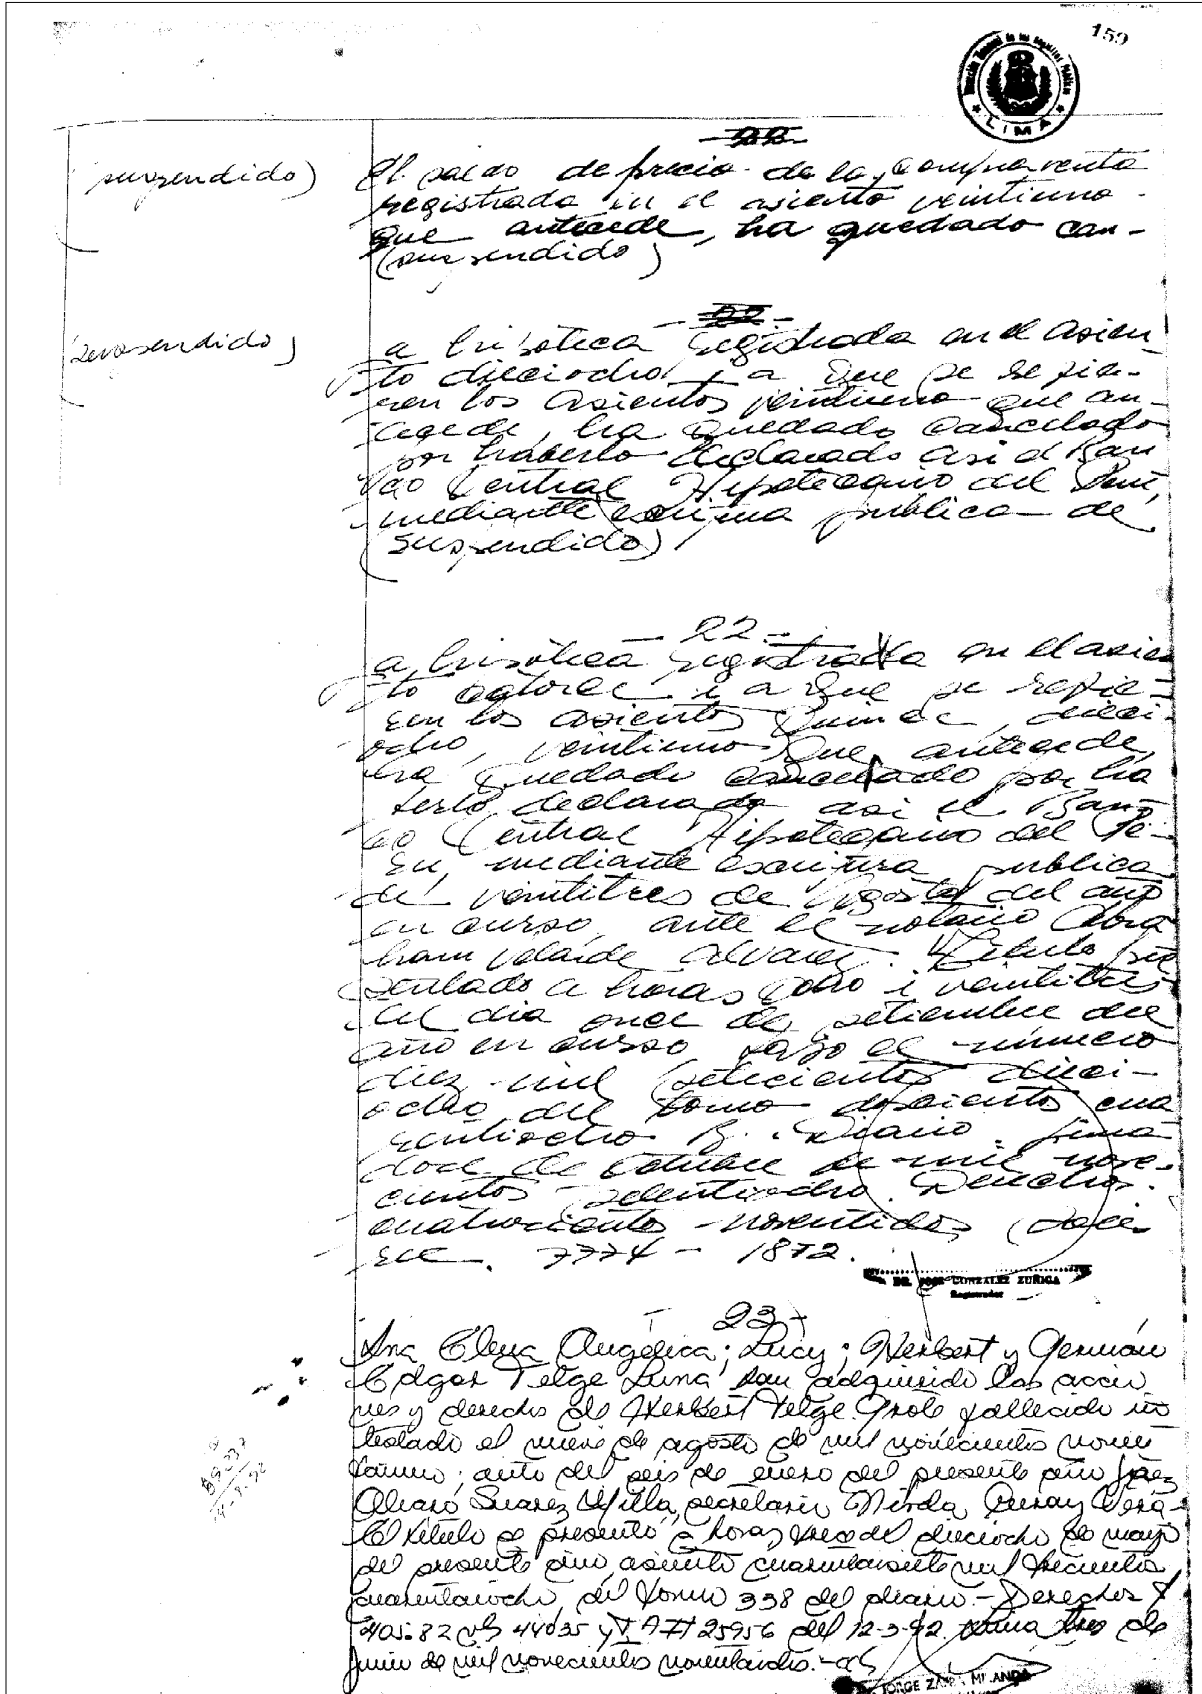 159
LIMA
22
suspendido)
El saldo de precio de la compra venta
registrada en el asiento veintiuno
que antecede, ha quedado can-
(suspendido)
22
suspendido)
a hipoteca registrada en el asien-
to dieciocho i a que se refie-
ren los asientos veintiuno que an-
tecede, ha quedado cancelado
por haberlo declarado asi el Ban
co Central Hipotecario del Perú,
mediante escritura publica de
(suspendido)
- 22 -
a hipoteca registrada en el asien
to catorce i a que se refie-
ren los asientos quince, dieci-
ocho, veintiuno que antecede,
ha quedado cancelado por ha
berlo declarado asi el Ban-
co Central Hipotecario del Pe-
rú, mediante escritura publica
de veintitres de Agosto del año
en curso, ante el notario Abra
ham Velarde Alvarez. Título pre
sentado a horas ocho i veintitres
del dia once de setiembre del
año en curso, bajo el número
diez mil setecientos dieci-
ocho del tomo doscientos cua
rentiocho B. Diario. Lima
doce de Octubre de mil nove-
cientos setentiocho. Derechos.
cuatrocientos noventidos
7774 - 1872.
DR. JOSE GONZALEZ ZUÑIGA
Registrador
- 23 -
Ana Elena Angélica; Lucy; Herbert y Germán
Edgar Telge Luna han adquirido las accio
nes y derechos de Herbert Telge Grote fallecido in
testado el nueve de agosto de mil novecientos noven
taiuno; auto del seis de enero del presente año Juez
Alvaro Suarez Villa, secretaria Nirda Vera
El título se presentó a horas trece del dieciocho de mayo
del presente año, asiento cuarentaisiete mil trecientos
cuarentaiocho, del tomo 338 del diario.- Derechos
405.82 44035 y 25956 del 12-3-92. Lima tres de
Junio de mil novecientos noventaidos.-
JORGE MIRANDA